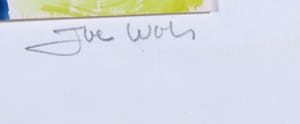 Joe Wols